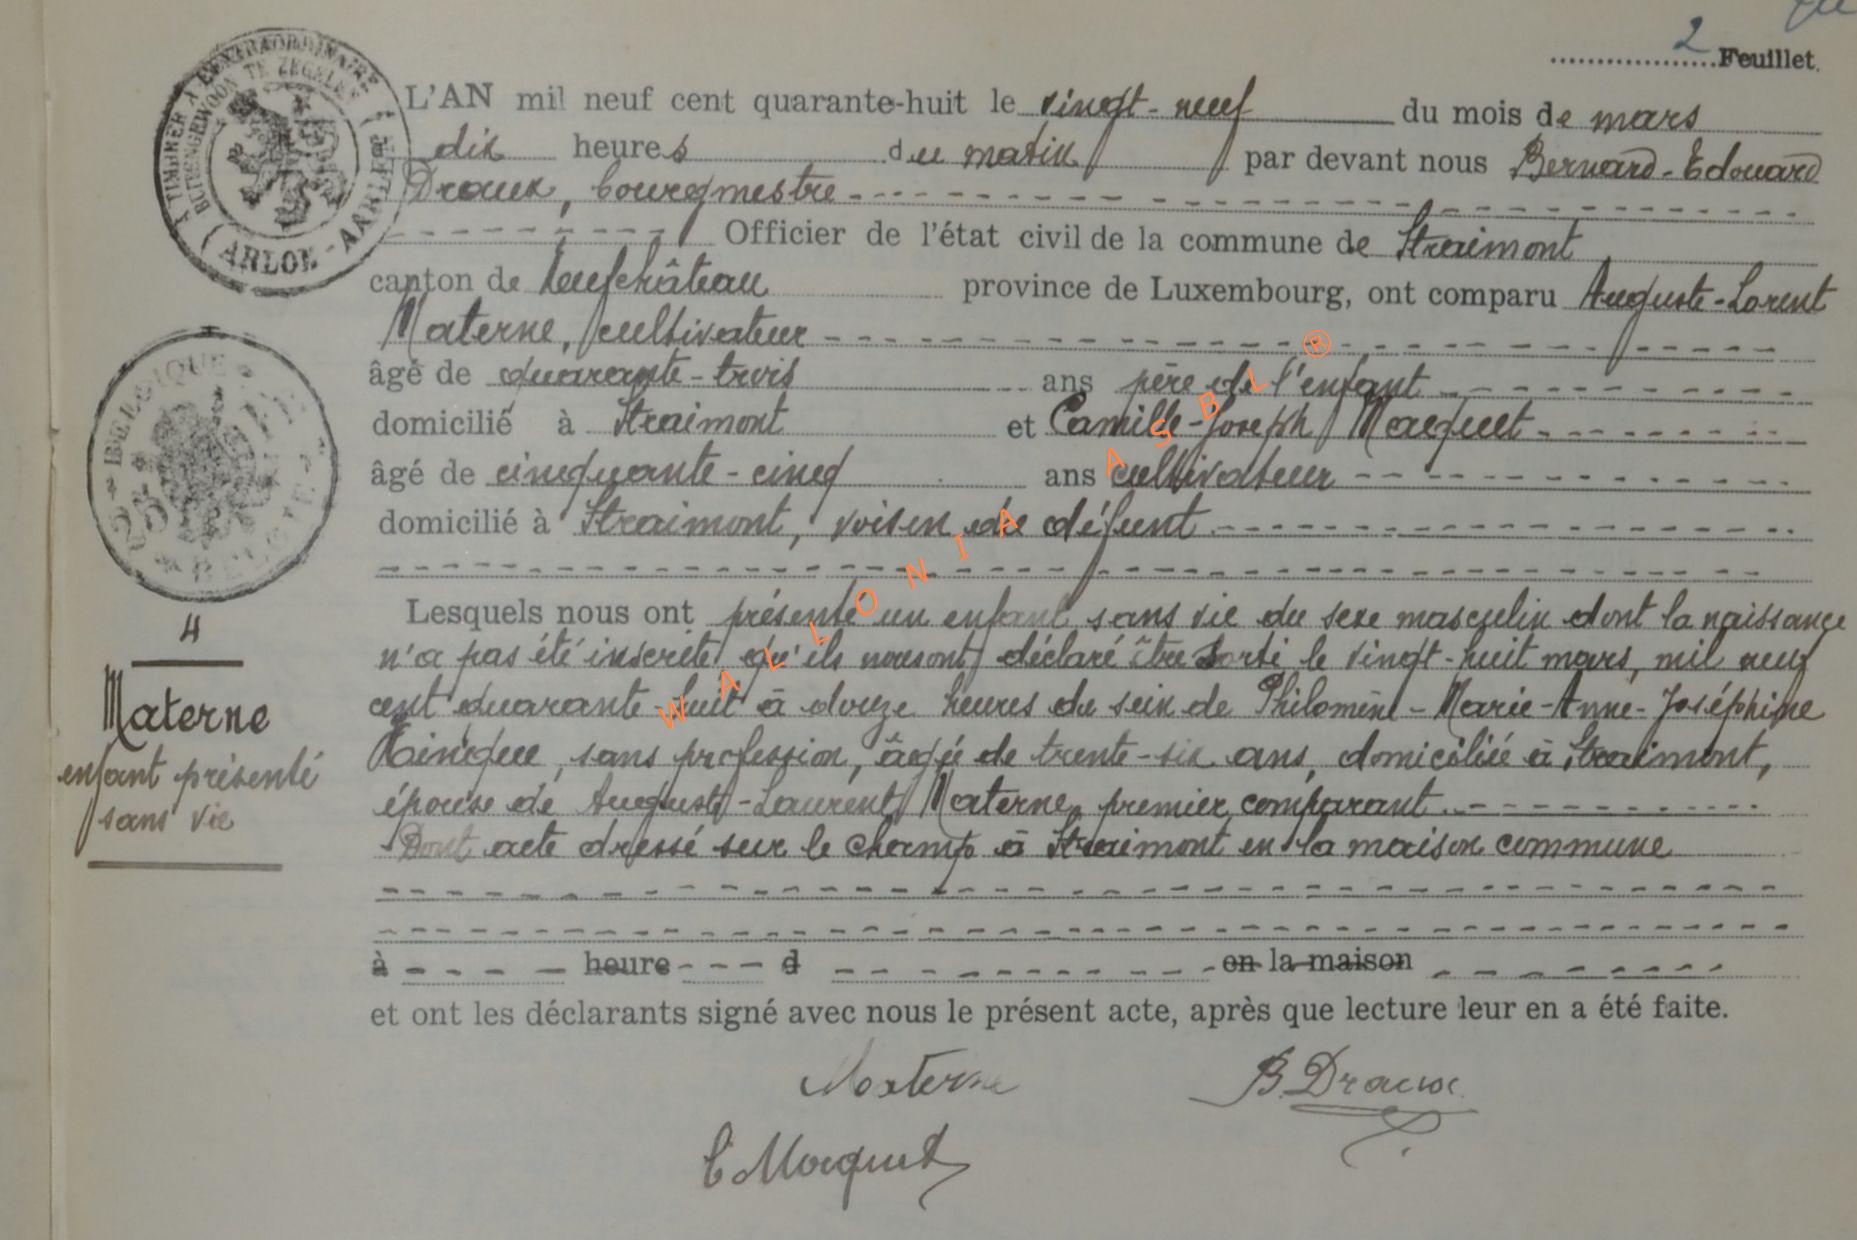 2 Feuillet.
À TIMBRER À L'EXTRAORDINAIRE
BUITENGEWOON TE ZEGELEN
ARLON-AARLEN
L'AN mil neuf cent quarante-huit le vingt-neuf du mois de mars
dix heures du matin par devant nous Bernard-Edouard
Draux, bourgmestre
Officier de l'état civil de la commune de Straimont
canton de Neufchâteau province de Luxembourg, ont comparu Auguste-Lorent
Materne, cultivateur
âgé de quarante-trois ans père de l'enfant
domicilié à Straimont et Camille-Joseph Maquet
âgé de cinquante-cinq ans cultivateur
domicilié à Straimont, voisin du défunt
BELGIQUE
BELGIE
Lesquels nous ont présenté un enfant sans vie du sexe masculin dont la naissance
n'a pas été inscrite qu'ils nous ont déclaré être sorti le vingt-huit mars, mil neuf
cent quarante-huit à douze heures du sein de Philomène-Marie-Anne-Joséphine
sans profession, âgée de trente-six ans, domiciliée à Straimont,
épouse de Auguste-Laurent Materne, premier comparant.
Dont acte dressé sur le champ à Straimont en la maison commune
4
Materne
enfant présenté
sans vie
à heure d en la maison
et ont les déclarants signé avec nous le présent acte, après que lecture leur en a été faite.
Materne B. Draux
C Maquet
WALLONIA ASBL ®